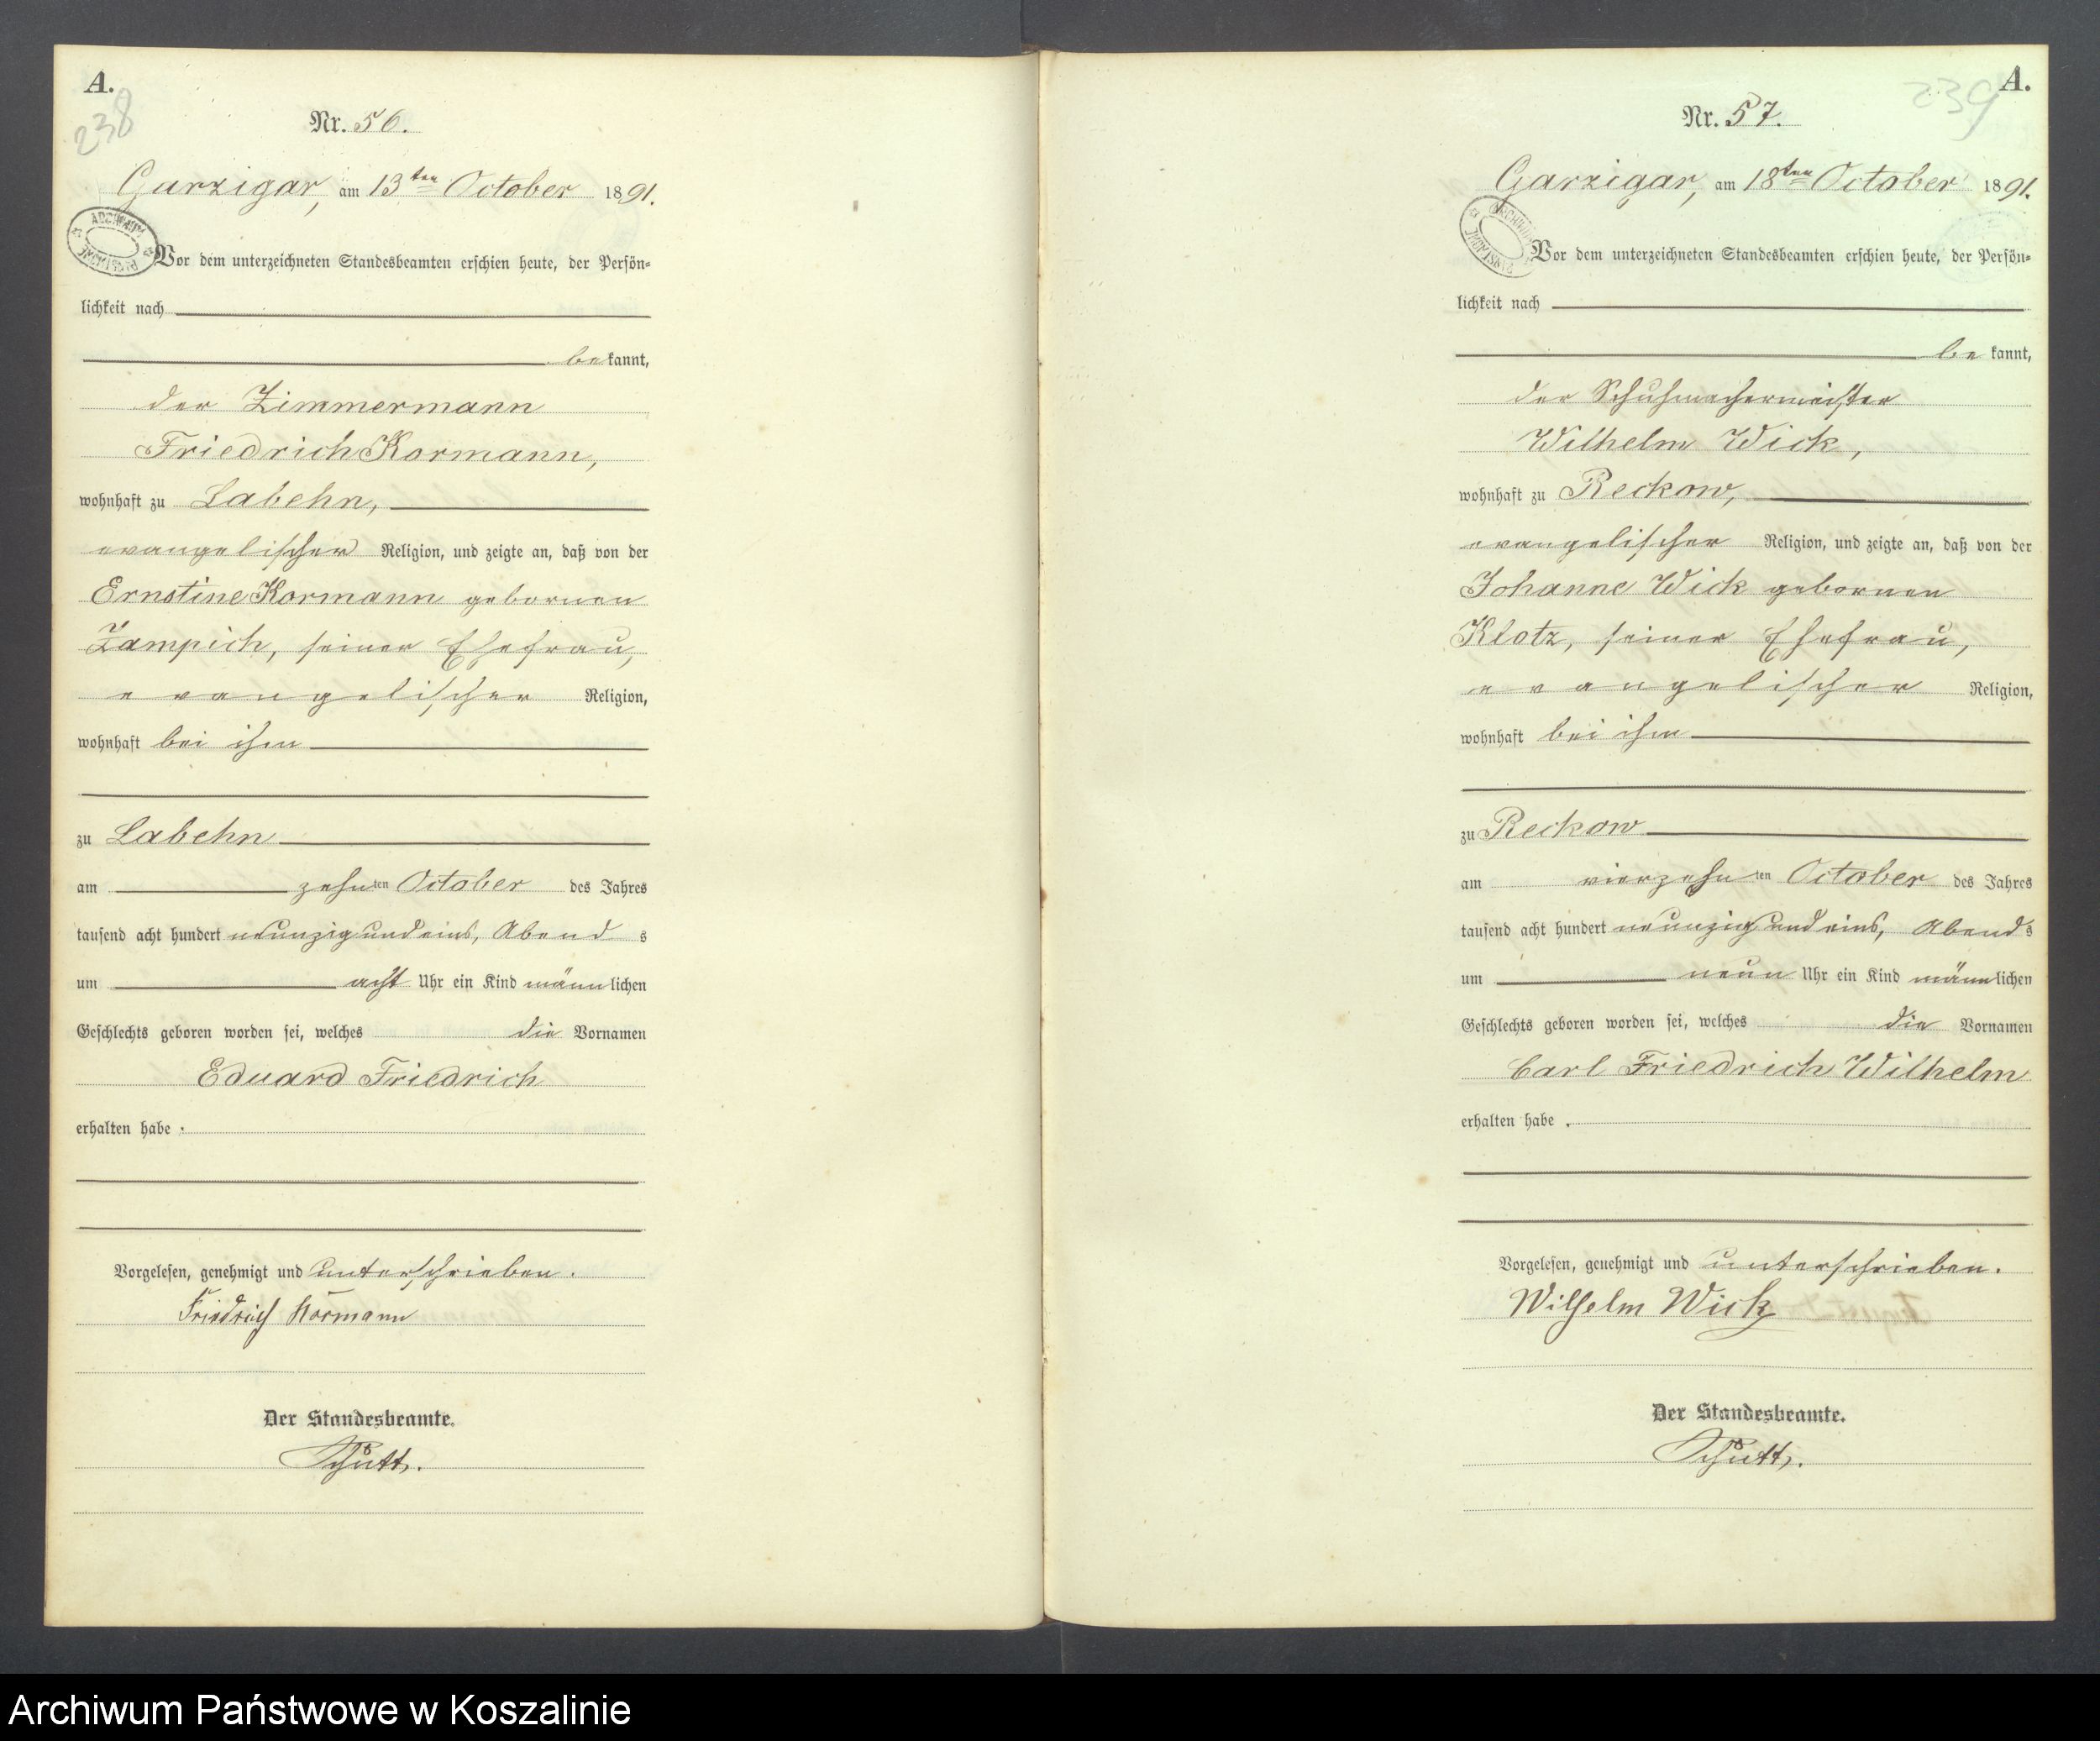 A.
238
Nr. 56.
Garzigar, am 13ten October 1891.
Vor dem unterzeichneten Standesbeamten erschien heute, der Persön-
lichkeit nach
bekannt,
der Zimmermann
Friedrich Kormann,
wohnhaft zu Labehn,
evangelischer Religion, und zeigte an, daß von der
Ernstine Kormann gebornen
Zampich, seiner Ehefrau,
evangelischer Religion,
wohnhaft bei ihm
zu Labehn
am zehnten October des Jahres
tausend acht hundert neunzig und eins, Abends
um acht Uhr ein Kind männlichen
Geschlechts geboren worden sei, welches die Vornamen
Eduard Friedrich
erhalten habe.
Vorgelesen, genehmigt und unterschrieben.
Friedrich Kormann
Der Standesbeamte.
Schütt.
A.
239
Nr. 57.
Garzigar, am 18ten October 1891.
Vor dem unterzeichneten Standesbeamten erschien heute, der Persön-
lichkeit nach
bekannt,
der Schuhmachermeister
Wilhelm Wick,
wohnhaft zu Reckow,
evangelischer Religion, und zeigte an, daß von der
Johanne Wick gebornen
Klotz, seiner Ehefrau,
evangelischer Religion,
wohnhaft bei ihm
zu Reckow
am vierzehnten October des Jahres
tausend acht hundert neunzig und eins, Abends
um neun Uhr ein Kind männlichen
Geschlechts geboren worden sei, welches die Vornamen
Carl Friedrich Wilhelm
erhalten habe.
Vorgelesen, genehmigt und unterschrieben.
Wilhelm Wick
Der Standesbeamte.
Schütt.
Archiwum Państwowe w Koszalinie